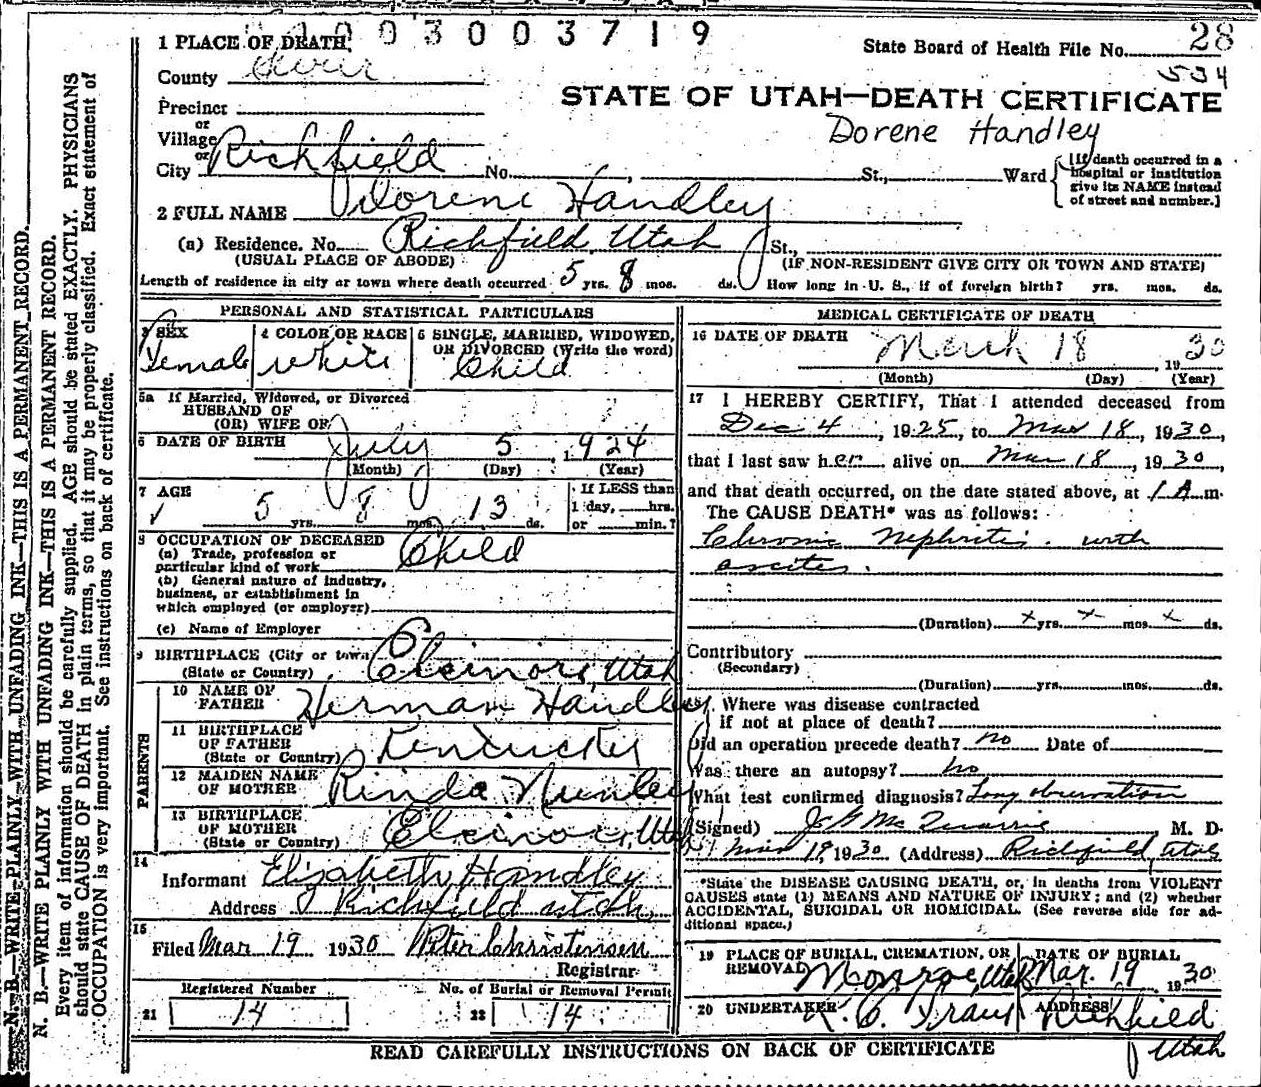 1003003719
State Board of Health File No. 28
534
1 PLACE OF DEATH
County Sevier
STATE OF UTAH—DEATH CERTIFICATE
Precinct
Dorene Handley
or
Village
or
City Richfield No. , St., Ward
[If death occurred in a
hospital or institution
give its NAME instead
of street and number.]
2 FULL NAME Dorene Handley
(a) Residence. No. Richfield Utah St.,
(USUAL PLACE OF ABODE) (IF NON-RESIDENT GIVE CITY OR TOWN AND STATE)
Length of residence in city or town where death occurred 5 yrs. 8 mos. ds. How long in U. S., if of foreign birth? yrs. mos. ds.
PERSONAL AND STATISTICAL PARTICULARS
3 SEX
Female
4 COLOR OR RACE
white
5 SINGLE, MARRIED, WIDOWED,
OR DIVORCED (Write the word)
Child
5a If Married, Widowed, or Divorced
HUSBAND OF
(OR) WIFE OF
6 DATE OF BIRTH July 5, 1924
(Month) (Day) (Year)
7 AGE
5 yrs. 8 mos. 13 ds.
If LESS than
1 day, hrs.
or min.?
8 OCCUPATION OF DECEASED
(a) Trade, profession or
particular kind of work Child
(b) General nature of industry,
business, or establishment in
which employed (or employer)
(c) Name of Employer
9 BIRTHPLACE (City or town)
(State or Country) Elsinore, Utah
PARENTS
10 NAME OF
FATHER Herman Handley
11 BIRTHPLACE
OF FATHER
(State or Country) Kentucky
12 MAIDEN NAME
OF MOTHER Rinda Nunley
13 BIRTHPLACE
OF MOTHER
(State or Country) Elsinore, Utah
14
Informant Elizabeth Handley
Address Richfield utah
15
Filed Mar 19 1930 Peter Christensen
Registrar
Registered Number
21 14
No. of Burial or Removal Permit
22 14
MEDICAL CERTIFICATE OF DEATH
16 DATE OF DEATH March 18, 1930
(Month) (Day) (Year)
17 I HEREBY CERTIFY, That I attended deceased from
Dec 4, 1925, to Mar 18, 1930,
that I last saw her alive on Mar 18, 1930,
and that death occurred, on the date stated above, at 1 A m.
The CAUSE DEATH* was as follows:
Chronic Nephritis with
ascites.
(Duration) x yrs. x mos. x ds.
Contributory
(Secondary)
(Duration) yrs. mos. ds.
Where was disease contracted
if not at place of death?
Did an operation precede death? no Date of
Was there an autopsy? no
What test confirmed diagnosis? Long observation
(Signed) M. D.
Mar 19, 1930 (Address) Richfield, Utah
*State the DISEASE CAUSING DEATH, or, in deaths from VIOLENT
CAUSES state (1) MEANS AND NATURE OF INJURY; and (2) whether
ACCIDENTAL, SUICIDAL OR HOMICIDAL. (See reverse side for ad-
ditional space.)
19 PLACE OF BURIAL, CREMATION, OR
REMOVAL Monroe, Utah
DATE OF BURIAL
Mar. 19, 1930
20 UNDERTAKER
ADDRESS
Richfield
Utah
READ CAREFULLY INSTRUCTIONS ON BACK OF CERTIFICATE
N. B.—WRITE PLAINLY WITH UNFADING INK—THIS IS A PERMANENT RECORD.
N. B.—WRITE PLAINLY WITH UNFADING INK—THIS IS A PERMANENT RECORD.
Every item of information should be carefully supplied. AGE should be stated EXACTLY. PHYSICIANS
should state CAUSE OF DEATH in plain terms, so that it may be properly classified. Exact statement of
OCCUPATION is very important. See instructions on back of certificate.